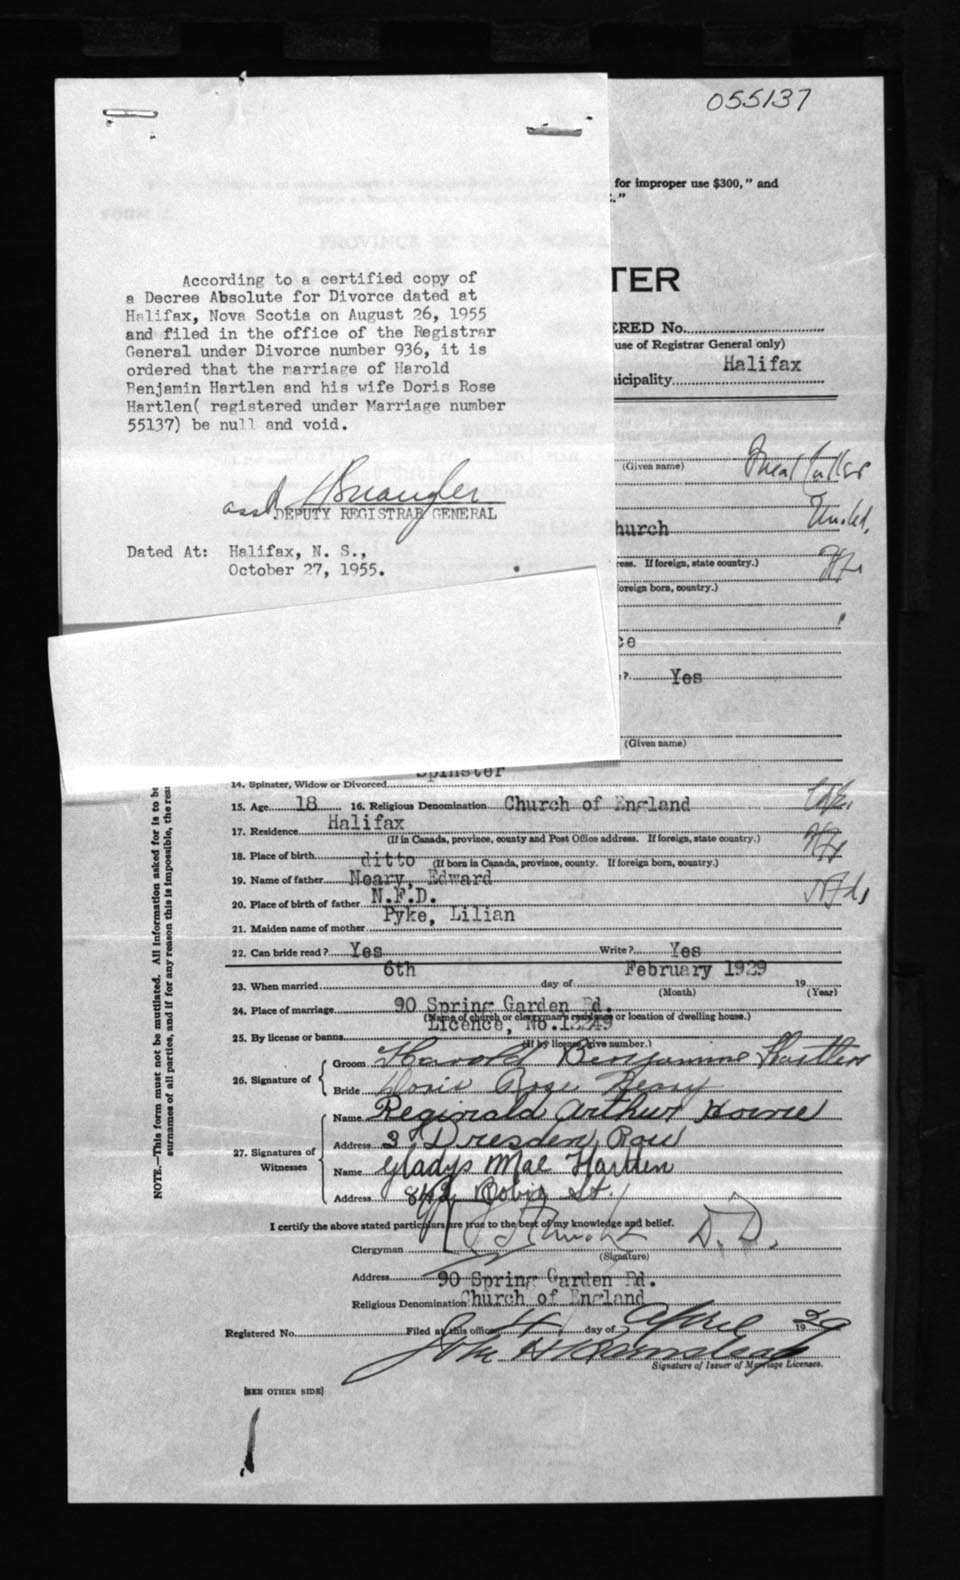 055137
for improper use $300," and
."
TER
ERED No.
use of Registrar General only)
Halifax
icipality
According to a certified copy of
a Decree Absolute for Divorce dated at
Halifax, Nova Scotia on August 26, 1955
and filed in the office of the Registrar
General under Divorce number 936, it is
ordered that the marriage of Harold
Benjamin Hartlen and his wife Doris Rose
Hartlen( registered under Marriage number
55137) be null and void.
(Given name)
Meat Cutter
asst
DEPUTY REGISTRAR GENERAL
hurch
United
Dated At: Halifax, N. S.,
October 27, 1955.
ress. If foreign, state country.)
Hfx
foreign born, country.)
ce
? Yes
(Given name)
Spinster
14. Spinster, Widow or Divorced
15. Age 18 16. Religious Denomination Church of England
17. Residence Halifax
(If in Canada, province, county and Post Office address. If foreign, state country.)
18. Place of birth ditto (If born in Canada, province, county. If foreign born, country.)
Hfx
19. Name of father Neary, Edward
Nfd
20. Place of birth of father N.F.D.
21. Maiden name of mother Pyke, Lilian
22. Can bride read? Yes Write? Yes
23. When married 6th day of February 1929 19
(Month) (Year)
24. Place of marriage 90 Spring Garden Rd.
(Name of church or clergyman's residence or location of dwelling house.)
25. By license or banns Licence, No.12249
(If by license, give number.)
26. Signature of
Groom Harold Benjamine Hartlen
Bride Doris Rose Neary
27. Signatures of Witnesses
Name Reginald Arthur Howe
Address 2 Dresden Row
Name Gladys Mae Hartlen
Address Robie St.
I certify the above stated particulars are true to the best of my knowledge and belief.
Clergyman D.D.
(Signature)
Address 90 Spring Garden Rd.
Religious Denomination Church of England
Registered No. Filed at this office 4 day of April 1929
Signature of Issuer of Marriage Licenses.
[SEE OTHER SIDE]
NOTE.—This form must not be mutilated. All information asked for is to be
surnames of all parties, and if for any reason this is impossible, the rea